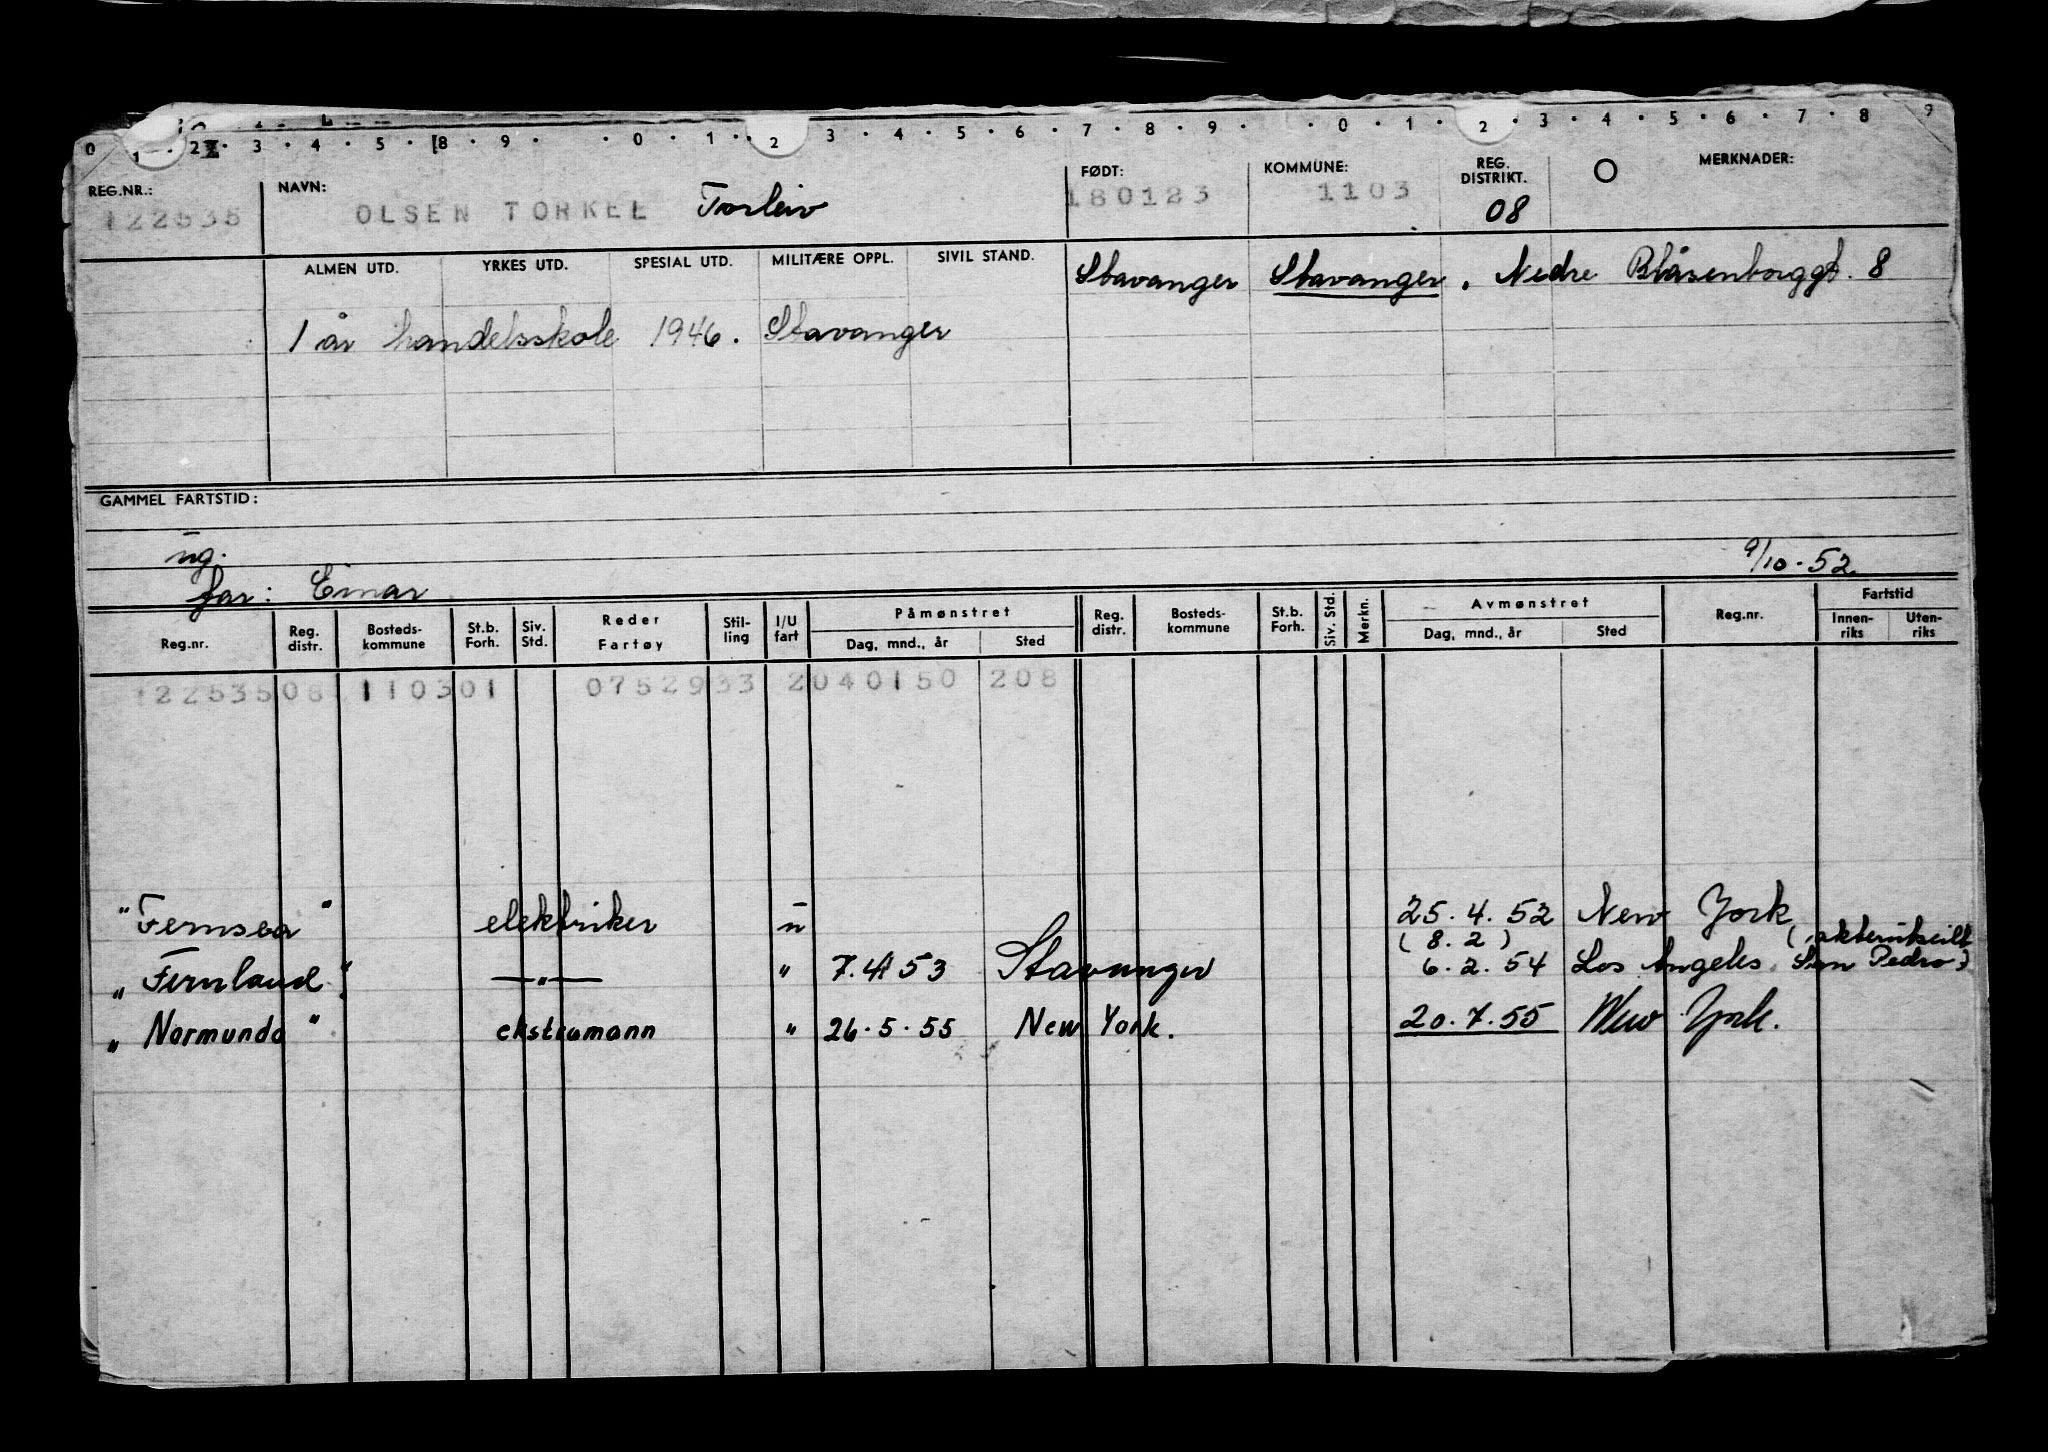 0 · 1 · 2 · 3 · 4 · 5 · 8 · 9 · 0 · 1 · 2 3 · 4 · 5 · 6 · 7 · 8 · 9 · 0 · 1 · 2 · 3 · 4 · 5 · 6 · 7 · 8 9
REG.NR.: NAVN: FØDT: KOMMUNE: REG. DISTRIKT. MERKNADER:
122535 OLSEN TORKEL Torleiv 180123 1103 08
ALMEN UTD. YRKES UTD. SPESIAL UTD. MILITÆRE OPPL. SIVIL STAND.
Stavanger Stavanger, Nedre Blåsenborggt. 8
1 år handelsskole 1946. Stavanger
GAMMEL FARTSTID:
ug.
9/10-52
far: Einar
Reg.nr. Reg. distr. Bosteds-kommune St.b. Forh. Siv. Std. Reder Fartøy Stil-ling I/U fart Påmønstret Dag, mnd., år Sted Reg. distr. Bosteds-kommune St.b. Forh. Siv. Std. Merkn. Avmønstret Dag, mnd., år Sted Reg.nr. Fartstid Innen-riks Uten-riks
122535 08 1103 01 0752933 2 040150 208
"Fernsea" elektriker u 25.4.52 New York
(8.2) San Pedro)
"Fernland" —"— " 7.4 53 Stavanger 6.2.54 Los Angeles
"Normundo" ekstramann " 26.5.55 New York. 20.7.55 New York.